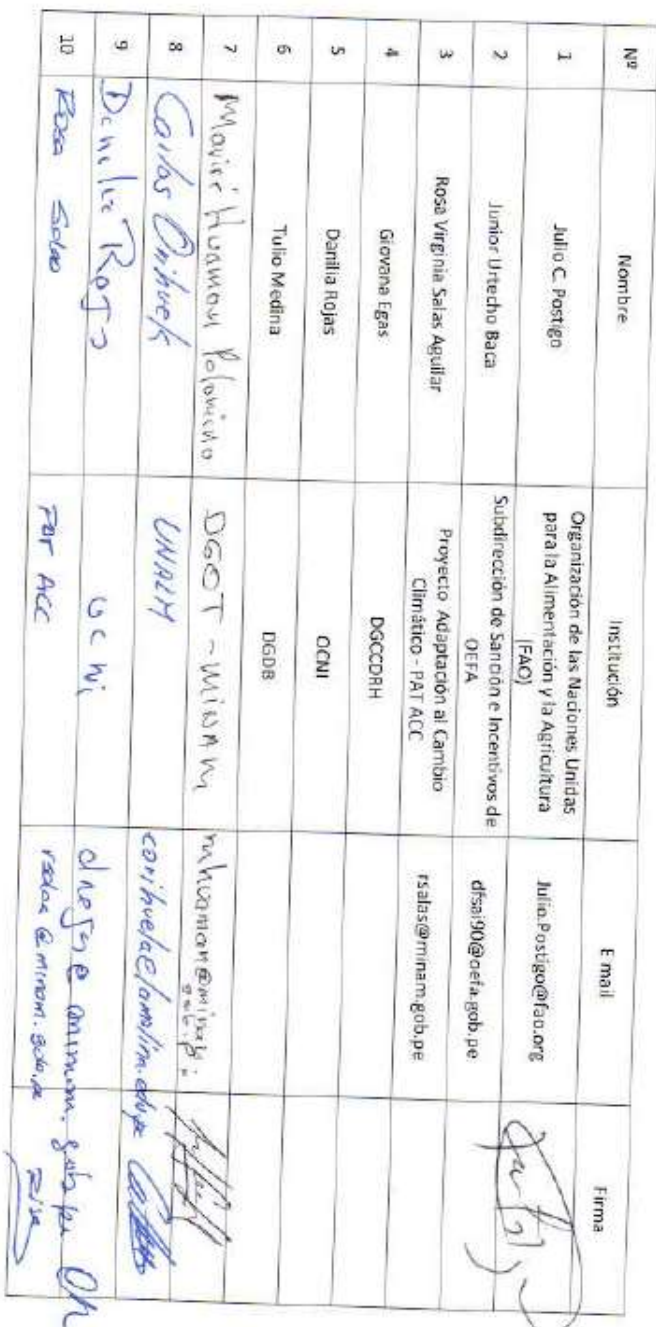 Nº Nombre Institución E mail Firma
1 Julio C. Postigo Organización de las Naciones Unidas para la Alimentación y la Agricultura (FAO) Julio.Postigo@fao.org
2 Junior Urtecho Baca Subdirección de Sanción e Incentivos de OEFA dfsai90@oefa.gob.pe
3 Rosa Virginia Salas Aguilar Proyecto Adaptación al Cambio Climático - PAT ACC rsalas@minam.gob.pe
4 Giovana Egas DGCCDRH
5 Danilia Rojas OCNI
6 Tulio Medina DGDB
7 Huaman Palomino DGOT - MINAM
8 Carlos Orihuela UNALM corihuela@lamolina.edu.pe
9
10 Rosa Salas PAT ACC rsalas@minam.gob.pe